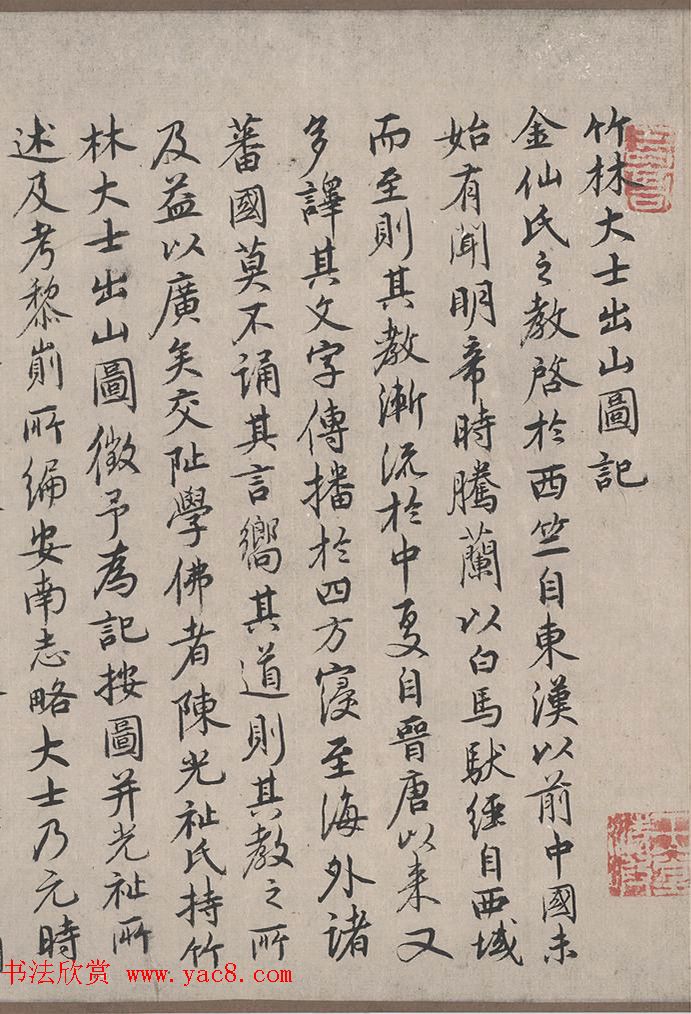 竹林大士出山圖記
金仙氏之教啓於西竺自東漢以前中國未
始有聞明帝時騰蘭以白馬馱經自西域
而至則其教漸流於中夏自晉唐以來又
多譯其文字傳播於四方寖至海外諸
蕃國莫不誦其言嚮其道則其教之所
及益以廣矣交阯學佛者陳光祉氏持竹
林大士出山圖徵予為記按圖并光祉所
述及考黎崱所編安南志略大士乃元時
书法欣赏 www.yac8.com